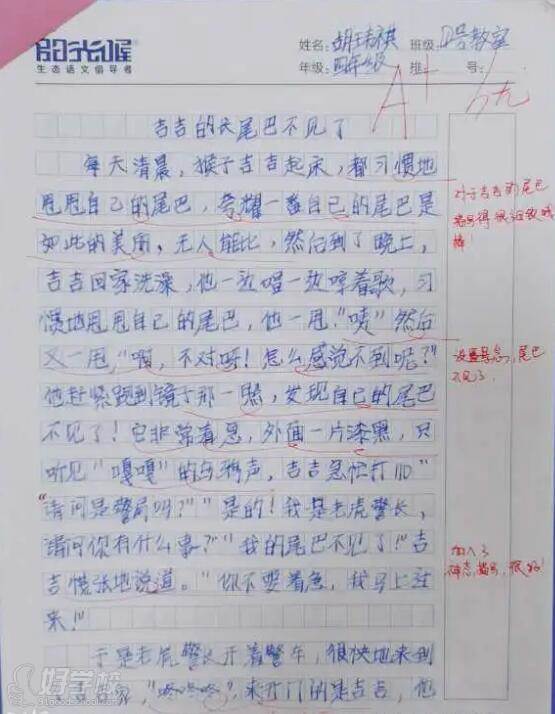 阳光喔
生态语文倡导者
姓名:胡瑧祺 班级:四号教室
年级:四年级 排 号:
A+ 优
吉吉的长尾巴不见了
每天清晨,猴子吉吉起床,都习惯地
甩甩自己的尾巴,夸耀一番自己的尾巴是
如此的美丽,无人能比,然后到了晚上,
吉吉回家洗澡,他一边唱一边哼着歌,习
惯地甩甩自己的尾巴,他一甩,"唛"然后
又一甩,"啊,不对呀!怎么感觉不到呢?"
他赶紧跑到镜子那一照,发现自己的尾巴
不见了!它非常着急,外面一片漆黑,只
听见"嘎嘎"的乌鸦声,吉吉急忙打110"
"请问是警局吗?""是的!我是老虎警长,
请问你有什么事?""我的尾巴不见了!"吉
吉慌张地说道。"你不要着急,我马上过
来!"
于是老虎警长开着警车,很快地来到
吉吉家,"咚咚咚",来开门的是吉吉,他
对于吉吉的尾巴
描写得很细致哦
棒!
设置悬念,尾巴
不见了.
加入了
神态描写,很好!
好学校